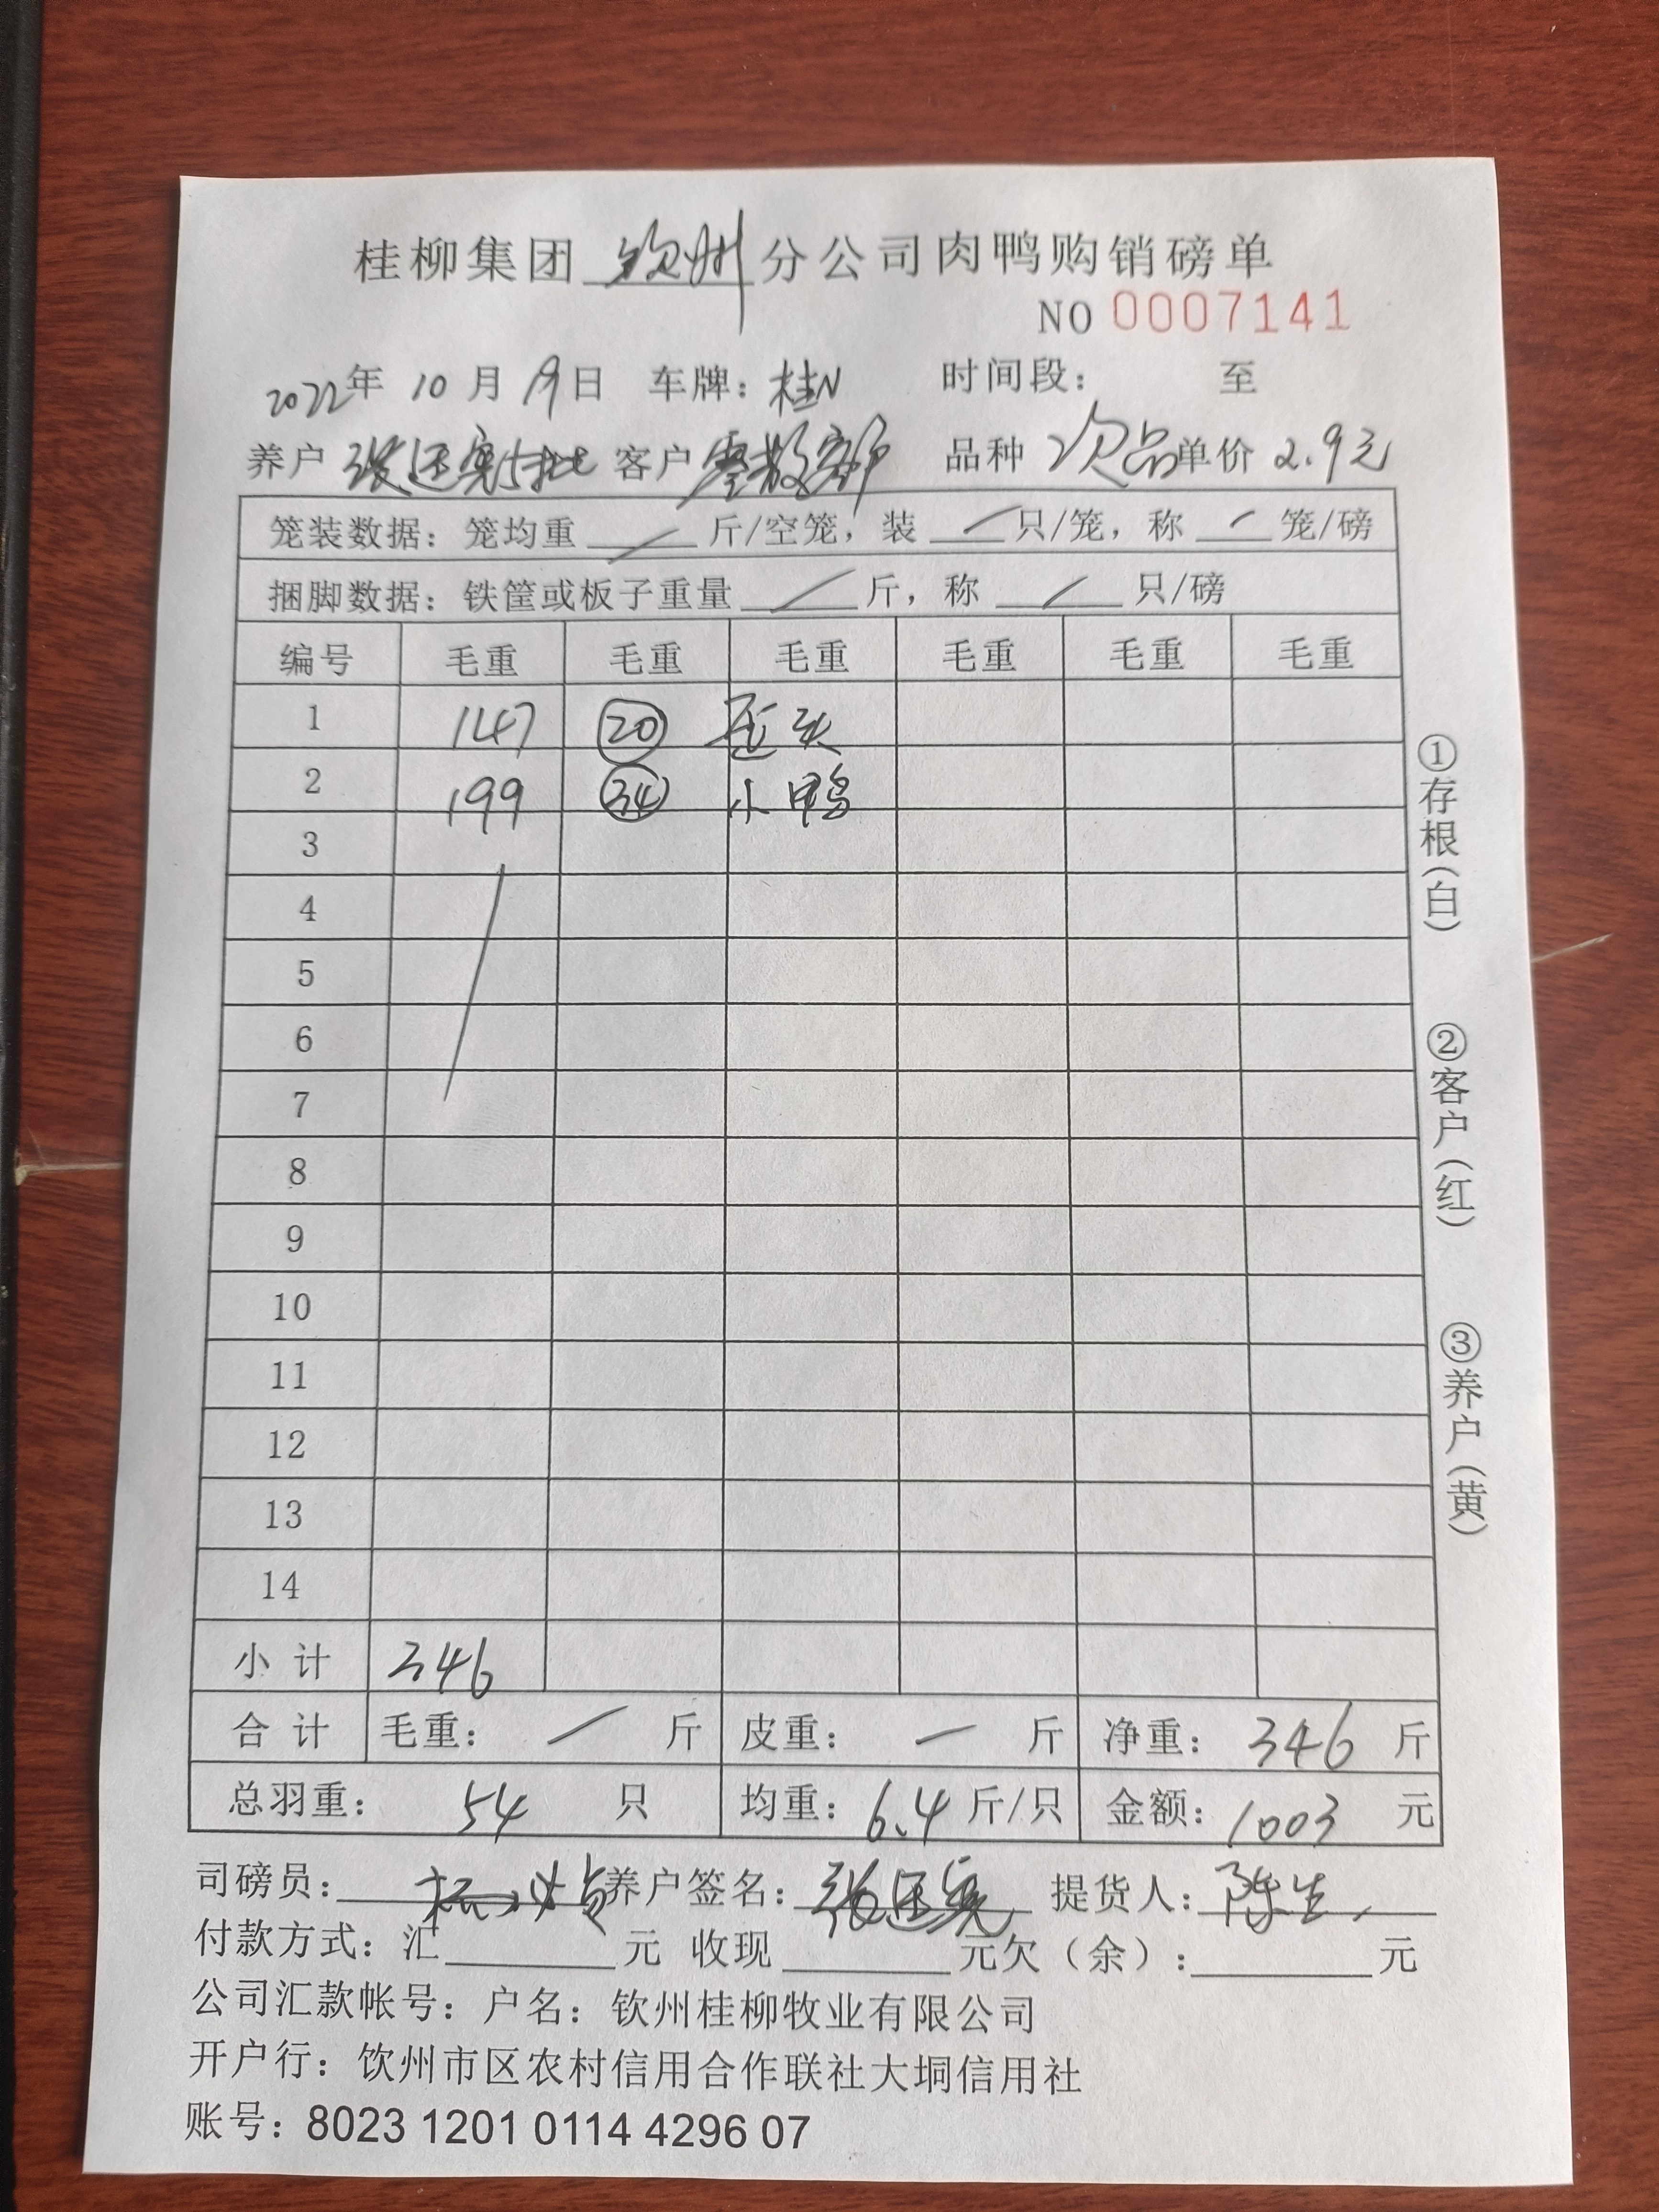 桂柳集团 钦州 分公司肉鸭购销磅单
NO 0007141
2022年 10 月 19 日 车牌：桂N 时间段： 至
养户 张还寛5批 客户 零散部 品种 次品 单价 2.9元
笼装数据：笼均重 / 斤/空笼，装 / 只/笼，称 / 笼/磅
捆脚数据：铁筐或板子重量 / 斤，称 / 只/磅
编号 毛重 毛重 毛重 毛重 毛重 毛重
1 147 20 歪头
2 199 34 小鸭
3
4
5
6
7
8
9
10
11
12
13
14
小计 346
合计 毛重： / 斤 皮重： / 斤 净重： 346 斤
总羽重： 54 只 均重：6.4 斤/只 金额：1003 元
司磅员： 养户签名： 提货人：陈生
付款方式：汇 元 收现 元欠（余）： 元
公司汇款帐号：户名：钦州桂柳牧业有限公司
开户行：饮州市区农村信用合作联社大垌信用社
账号：8023 1201 0114 4296 07
①存根（白）
②客户（红）
③养户（黄）